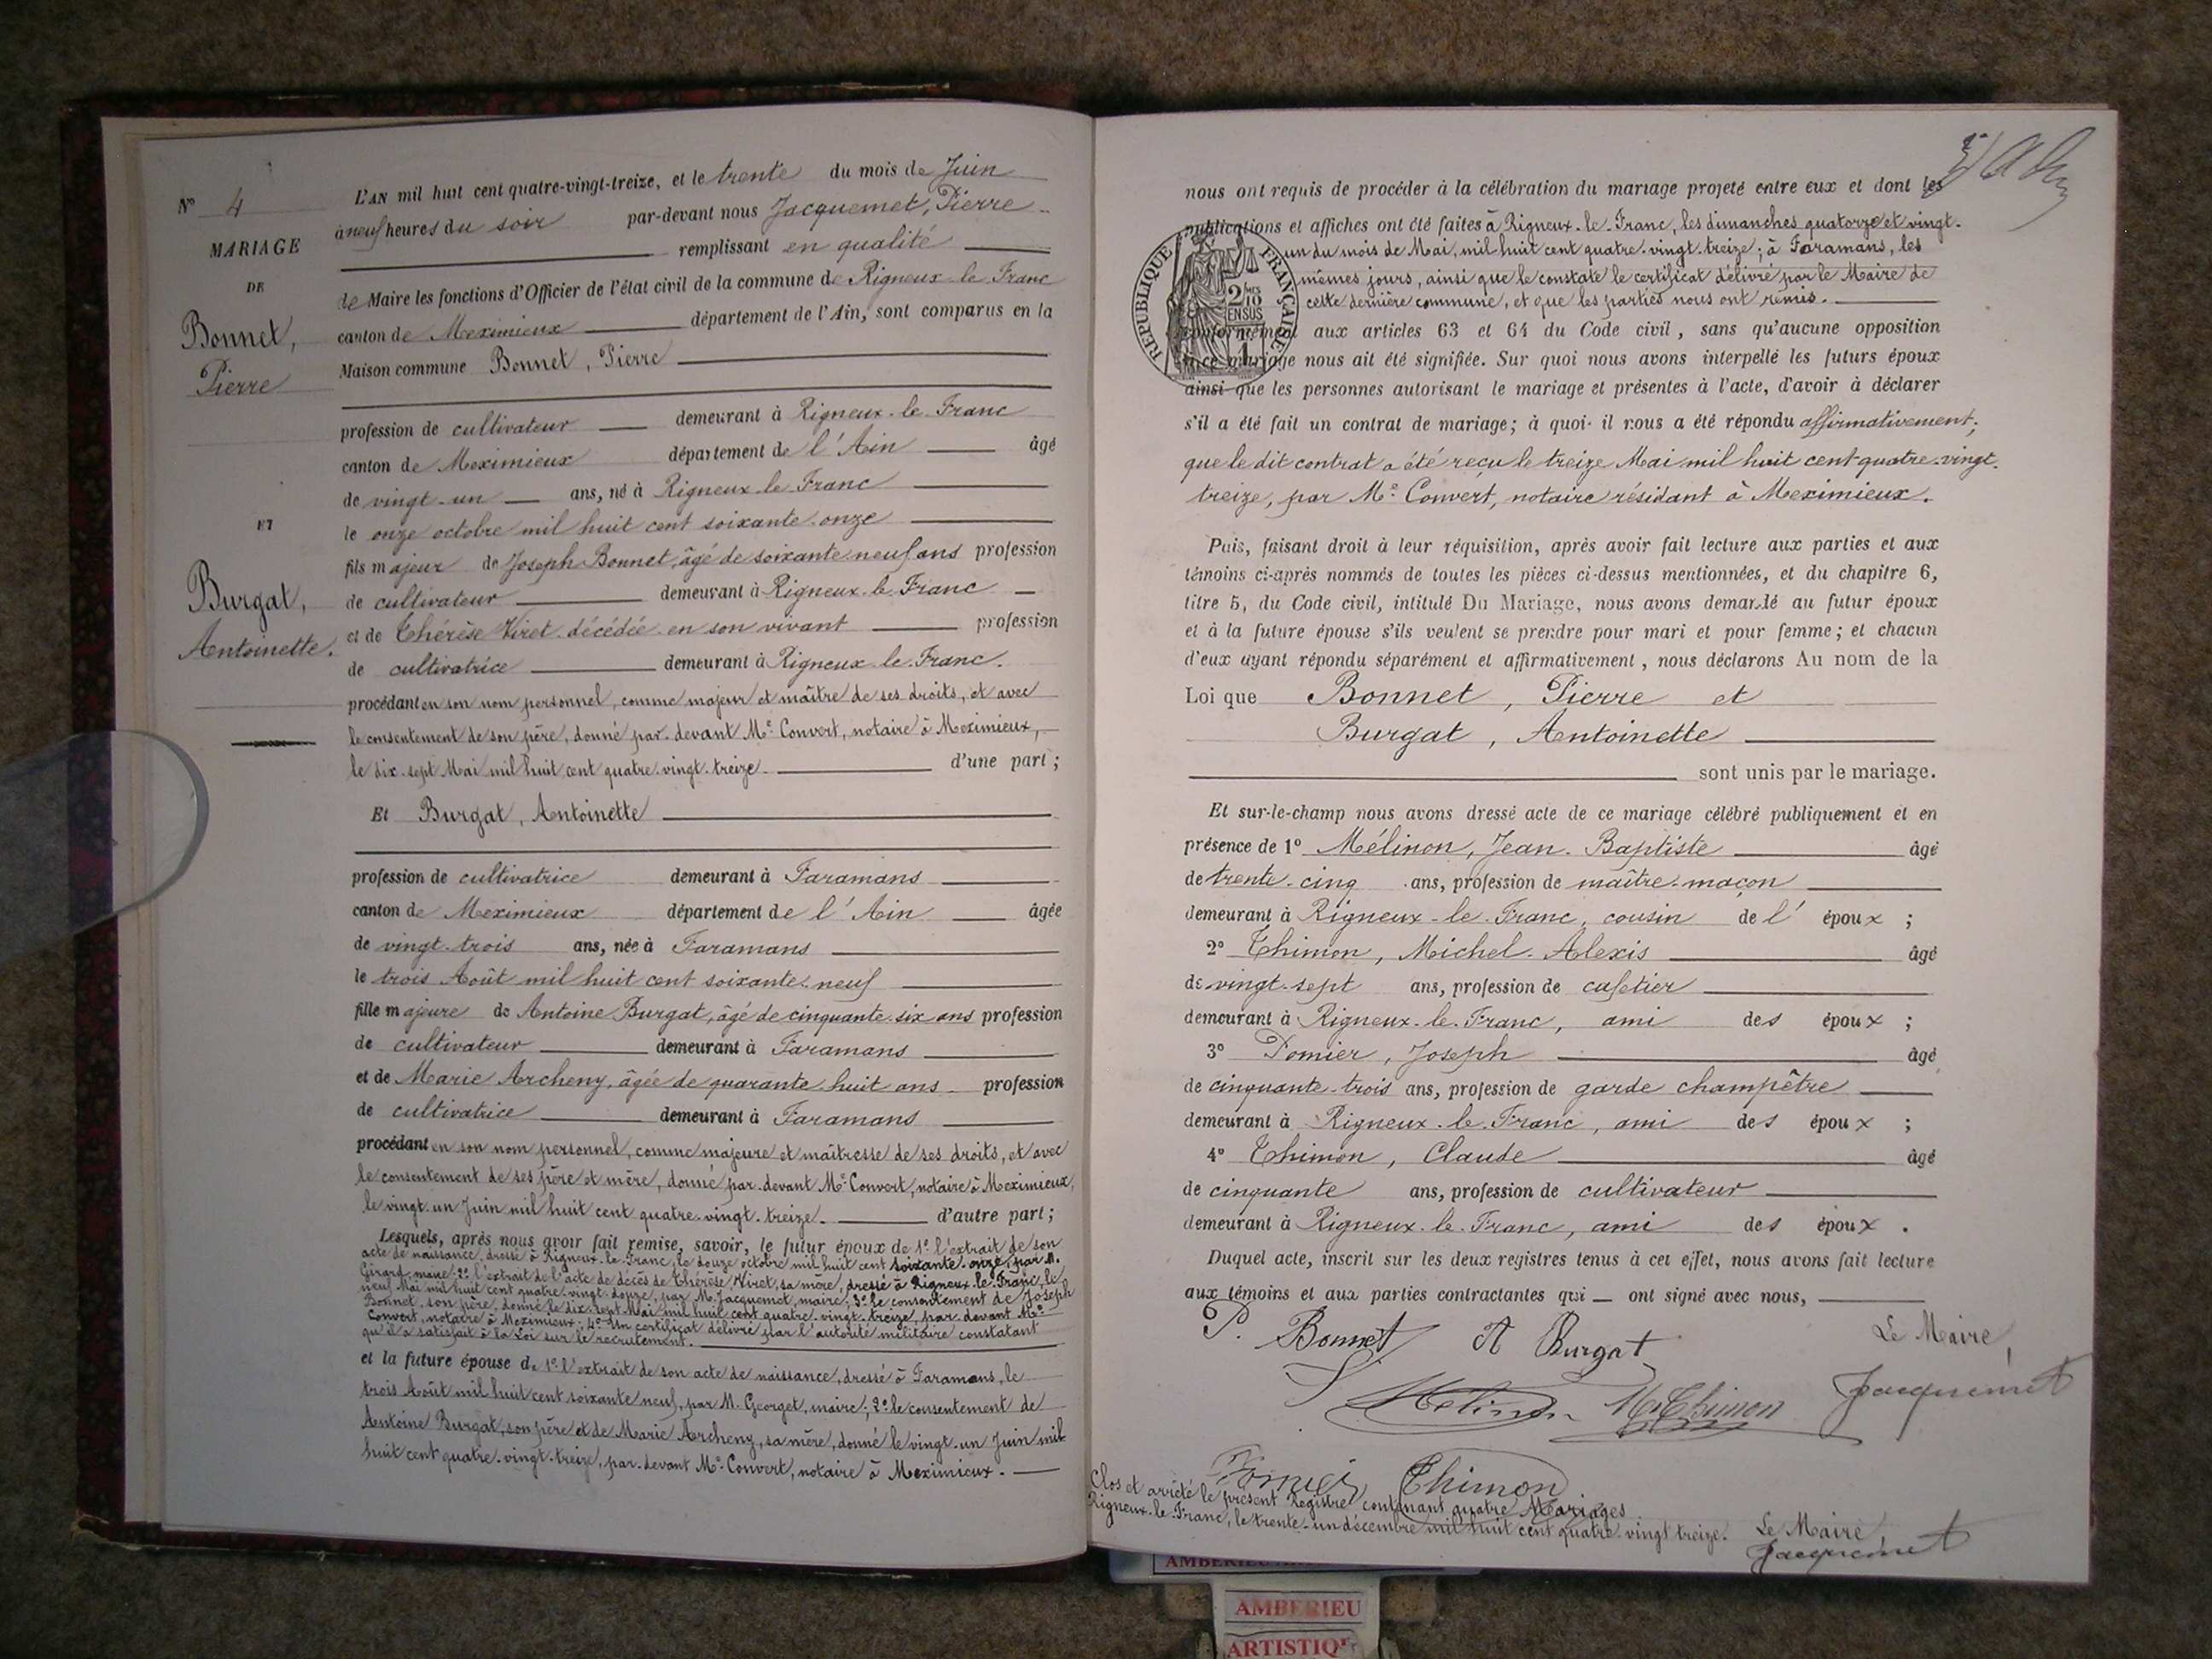 N° 4
MARIAGE
DE
Bonnet,
Pierre
ET
Burgat,
Antoinette.
L'AN mil huit cent quatre-vingt-treize, et le trente du mois de Juin
à neuf heures du soir par-devant nous Jacquemet, Pierre
remplissant en qualité
de Maire les fonctions d'Officier de l'état civil de la commune de Rigneux-le-Franc
canton de Meximieux département de l'Ain, sont comparus en la
Maison commune Bonnet, Pierre
profession de cultivateur demeurant à Rigneux-le-Franc
canton de Meximieux département de l'Ain âgé
de vingt-un ans, né à Rigneux-le-Franc
le onze octobre mil huit cent soixante-onze
fils majeur de Joseph Bonnet, âgé de soixante-neuf ans profession
de cultivateur demeurant à Rigneux-le-Franc
et de Thérèse Viret décédée en son vivant profession
de cultivatrice demeurant à Rigneux-le-Franc.
procédant en son nom personnel, comme majeur et maître de ses droits, et avec
le consentement de son père, donné par-devant Me Convert, notaire à Meximieux,
le dix-sept Mai mil huit cent quatre-vingt-treize. d'une part;
Et Burgat, Antoinette
profession de cultivatrice demeurant à Faramans
canton de Meximieux département de l'Ain âgée
de vingt-trois ans, née à Faramans
le trois Août mil huit cent soixante-neuf
fille majeure de Antoine Burgat, âgé de cinquante-six ans profession
de cultivateur demeurant à Faramans
et de Marie Archeny, âgée de quarante-huit ans profession
de cultivatrice demeurant à Faramans
procédant en son nom personnel, comme majeure et maîtresse de ses droits, et avec
le consentement de ses père et mère, donné par-devant Me Convert, notaire à Meximieux,
le vingt-un Juin mil huit cent quatre-vingt-treize. d'autre part;
Lesquels, après nous avoir fait remise, savoir, le futur époux de 1° l'extrait de son
acte de naissance, dressé à Rigneux-le-Franc, le douze octobre mil huit cent soixante-onze, par M.
Girard, maire; 2° l'extrait de l'acte de décès de Thérèse Viret, sa mère, dressé à Rigneux-le-Franc, le
neuf Mai mil huit cent quatre-vingt-douze, par M. Jacquemet, maire; 3° le consentement de Joseph
Bonnet, son père, donné le dix-sept Mai mil huit cent quatre-vingt-treize, par-devant Me
Convert, notaire à Meximieux; 4° Un certificat délivré par l'autorité militaire constatant
qu'il a satisfait à la Loi sur le recrutement.
et la future épouse de 1° l'extrait de son acte de naissance, dressé à Faramans, le
trois Août mil huit cent soixante neuf, par M. Georget, maire; 2° le consentement de
Antoine Burgat, son père et de Marie Archeny, sa mère, donné le vingt-un Juin mil
huit cent quatre-vingt-treize, par-devant Me Convert, notaire à Meximieux.
nous ont requis de procéder à la célébration du mariage projeté entre eux et dont les
publications et affiches ont été faites à Rigneux-le-Franc, les dimanches quatorze et vingt-
un du mois de Mai, mil huit cent quatre-vingt-treize; à Faramans, les
mêmes jours, ainsi que le constate le certificat délivré par le Maire de
cette dernière commune, et que les parties nous ont remis.
RÉPUBLIQUE FRANÇAISE
2 10 MES
EN SUS
conformément aux articles 63 et 64 du Code civil, sans qu'aucune opposition
à ce mariage nous ait été signifiée. Sur quoi nous avons interpellé les futurs époux
ainsi que les personnes autorisant le mariage et présentes à l'acte, d'avoir à déclarer
s'il a été fait un contrat de mariage; à quoi il nous a été répondu affirmativement;
que le dit contrat a été reçu le treize Mai mil huit cent quatre-vingt-
treize, par Me Convert, notaire résidant à Meximieux.
Puis, faisant droit à leur réquisition, après avoir fait lecture aux parties et aux
témoins ci-après nommés de toutes les pièces ci-dessus mentionnées, et du chapitre 6,
titre 5, du Code civil, intitulé Du Mariage, nous avons demandé au futur époux
et à la future épouse s'ils veulent se prendre pour mari et pour femme; et chacun
d'eux ayant répondu séparément et affirmativement, nous déclarons Au nom de la
Loi que Bonnet, Pierre et
Burgat, Antoinette
sont unis par le mariage.
Et sur-le-champ nous avons dressé acte de ce mariage célébré publiquement et en
présence de 1° Mélinon, Jean-Baptiste âgé
de trente-cinq ans, profession de maître-maçon
demeurant à Rigneux-le-Franc, cousin de l'époux;
2° Thimon, Michel-Alexis âgé
de vingt-sept ans, profession de cafetier
demeurant à Rigneux-le-Franc, ami des époux;
3° Pomier, Joseph âgé
de cinquante-trois ans, profession de garde champêtre
demeurant à Rigneux-le-Franc, ami des époux;
4° Thimon, Claude âgé
de cinquante ans, profession de cultivateur
demeurant à Rigneux-le-Franc, ami des époux.
Duquel acte, inscrit sur les deux registres tenus à cet effet, nous avons fait lecture
aux témoins et aux parties contractantes qui ont signé avec nous,
P. Bonnet A Burgat Le Maire,
Mélinon M Thimon Jacquemet
Pomier Thimon
Clos et arrêté le présent Registre contenant quatre Mariages
Rigneux-le-Franc, le trente-un décembre mil huit cent quatre-vingt-treize. Le Maire,
Jacquemet
AMBERIEU
AMBERIEU
ARTISTIQ